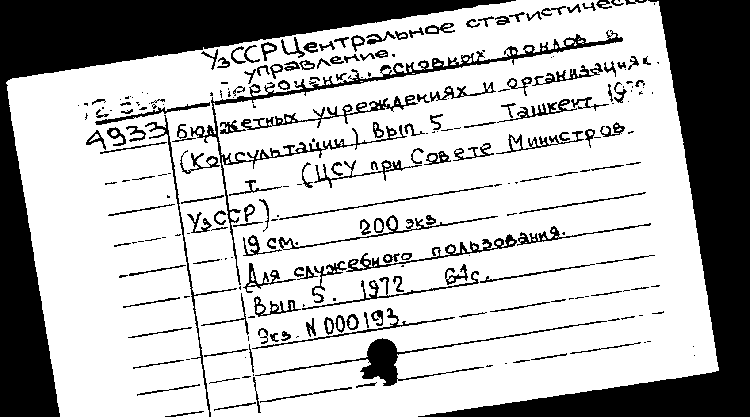 УзССР Центральное статистическое
управление.
Переоценка основных фондов в
4933 бюджетных учреждениях и организациях.
(Консультации). Вып. 5 Ташкент, 1972.
т. (ЦСУ при Совете Министров
УзССР).
19 см. 200 экз.
Для служебного пользования.
Вып. 5. 1972. 64с.
Экз. N 000193.